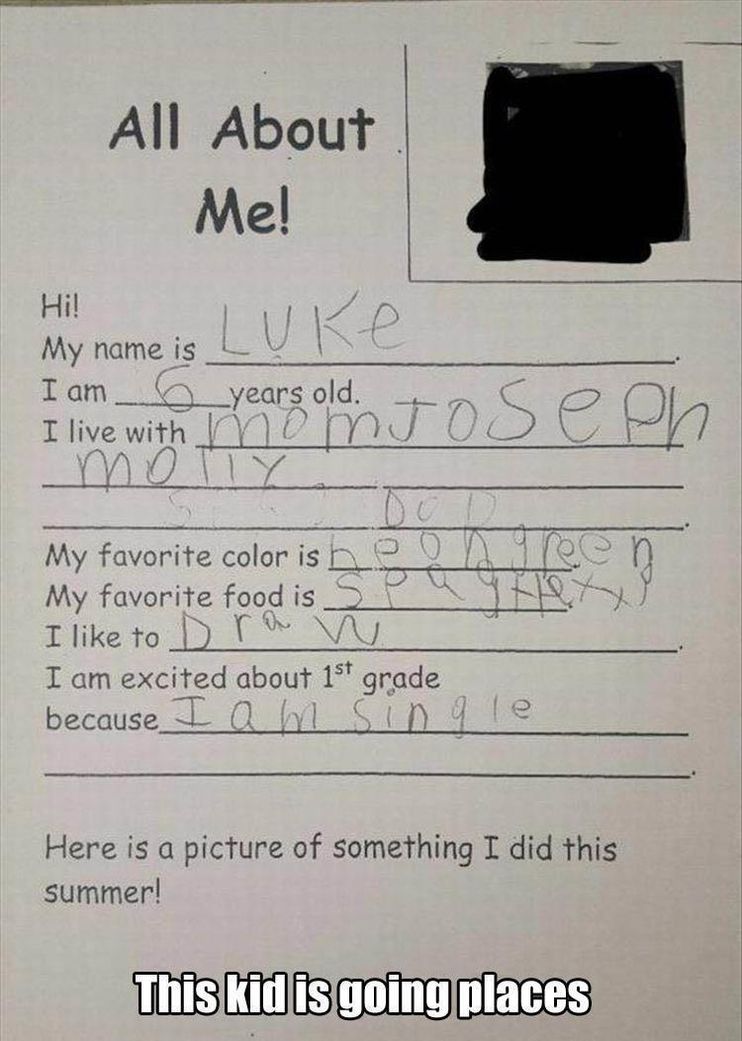 All About
Me!
Hi!
My name is LUKe.
I am 6 years old.
I live with mom JoSePh
moLLY
DaD.
My favorite color is neongreen
My favorite food is
I like to Draw.
I am excited about 1st grade
because I am single
Here is a picture of something I did this
summer!
This kid is going places